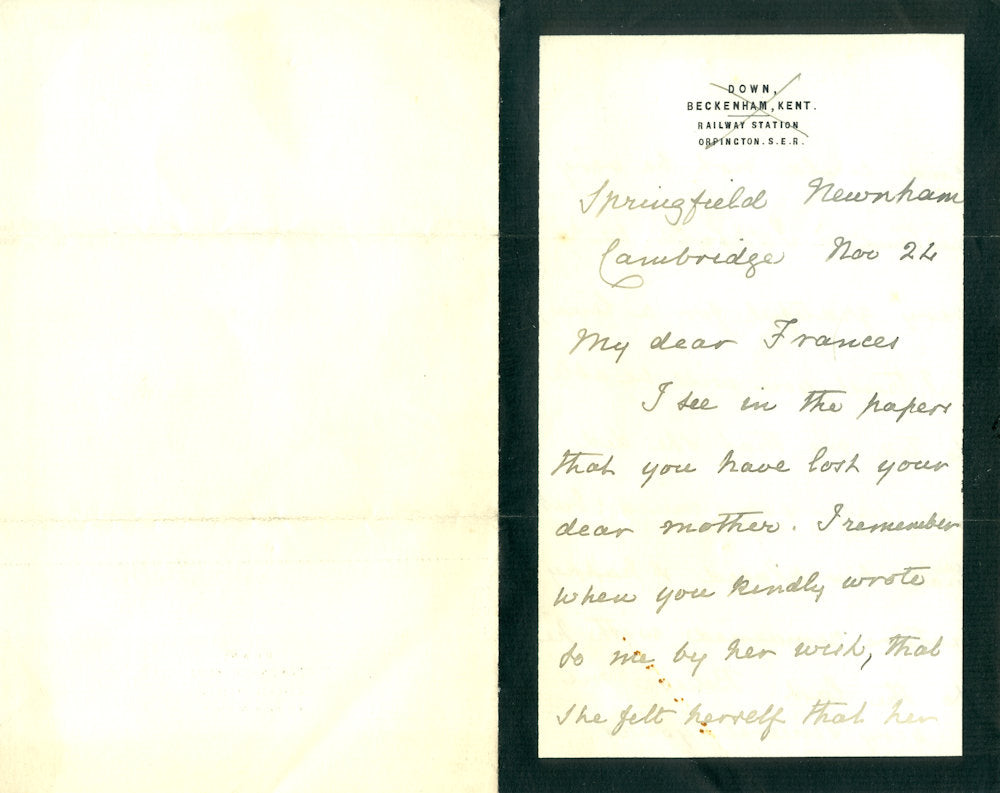 DOWN,
BECKENHAM, KENT.
RAILWAY STATION
ORPINGTON. S.E.R.
Springfield Newnham
Cambridge Nov 24
My dear Frances
I see in the papers
that you have lost your
dear mother. I remember
when you kindly wrote
to me by her wish, that
she felt herself that her